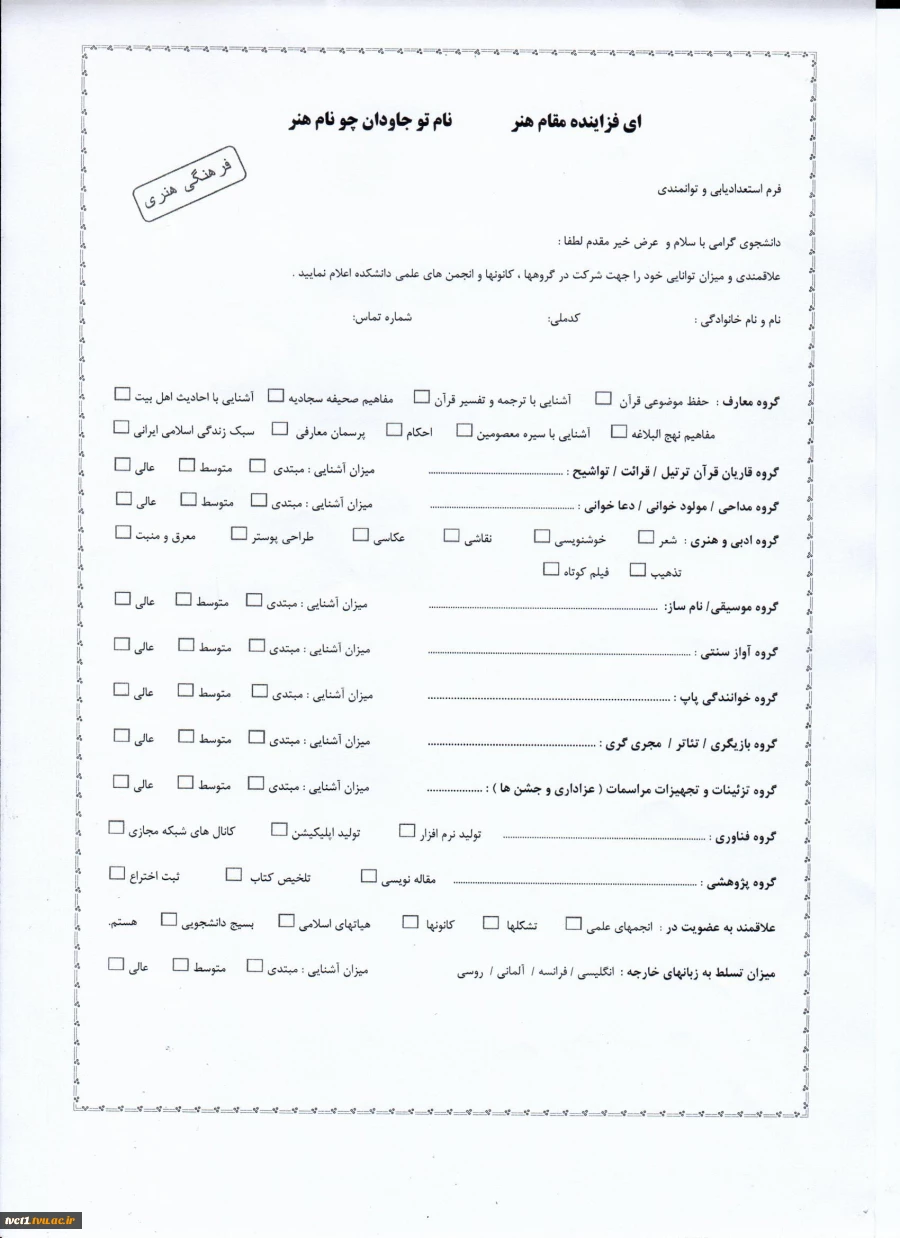 ای فزاینده مقام هنر نام تو جاودان چو نام هنر
فرهنگی هنری
فرم استعدادیابی و توانمندی
دانشجوی گرامی با سلام و عرض خیر مقدم لطفا :
علاقمندی و میزان توانایی خود را جهت شرکت در گروهها ، کانونها و انجمن های علمی دانشکده اعلام نمایید .
نام و نام خانوادگی : کدملی: شماره تماس:
گروه معارف : حفظ موضوعی قرآن □ آشنایی با ترجمه و تفسیر قرآن □ مفاهیم صحیفه سجادیه □ آشنایی با احادیث اهل بیت □
مفاهیم نهج البلاغه □ آشنایی با سیره معصومین □ احکام □ پرسمان معارفی □ سبک زندگی اسلامی ایرانی □
گروه قاریان قرآن ترتیل / قرائت / تواشیح : ........................................ میزان آشنایی : مبتدی □ متوسط □ عالی □
گروه مداحی / مولود خوانی / دعا خوانی : ........................................ میزان آشنایی : مبتدی □ متوسط □ عالی □
گروه ادبی و هنری : شعر □ خوشنویسی □ نقاشی □ عکاسی □ طراحی پوستر □ معرق و منبت □
تذهیب □ فیلم کوتاه □
گروه موسیقی/ نام ساز: ........................................ میزان آشنایی : مبتدی □ متوسط □ عالی □
گروه آواز سنتی : ........................................ میزان آشنایی : مبتدی □ متوسط □ عالی □
گروه خوانندگی پاپ : ........................................ میزان آشنایی : مبتدی □ متوسط □ عالی □
گروه بازیگری / تئاتر / مجری گری : ........................................ میزان آشنایی : مبتدی □ متوسط □ عالی □
گروه تزئینات و تجهیزات مراسمات ( عزاداری و جشن ها ) : .................. میزان آشنایی : مبتدی □ متوسط □ عالی □
گروه فناوری : ........................................ تولید نرم افزار □ تولید اپلیکیشن □ کانال های شبکه مجازی □
گروه پژوهشی : ........................................ مقاله نویسی □ تلخیص کتاب □ ثبت اختراع □
علاقمند به عضویت در : انجمهای علمی □ تشکلها □ کانونها □ هیاتهای اسلامی □ بسیج دانشجویی □ هستم.
میزان تسلط به زبانهای خارجه : انگلیسی / فرانسه / آلمانی / روسی میزان آشنایی : مبتدی □ متوسط □ عالی □
tvct1.tvu.ac.ir